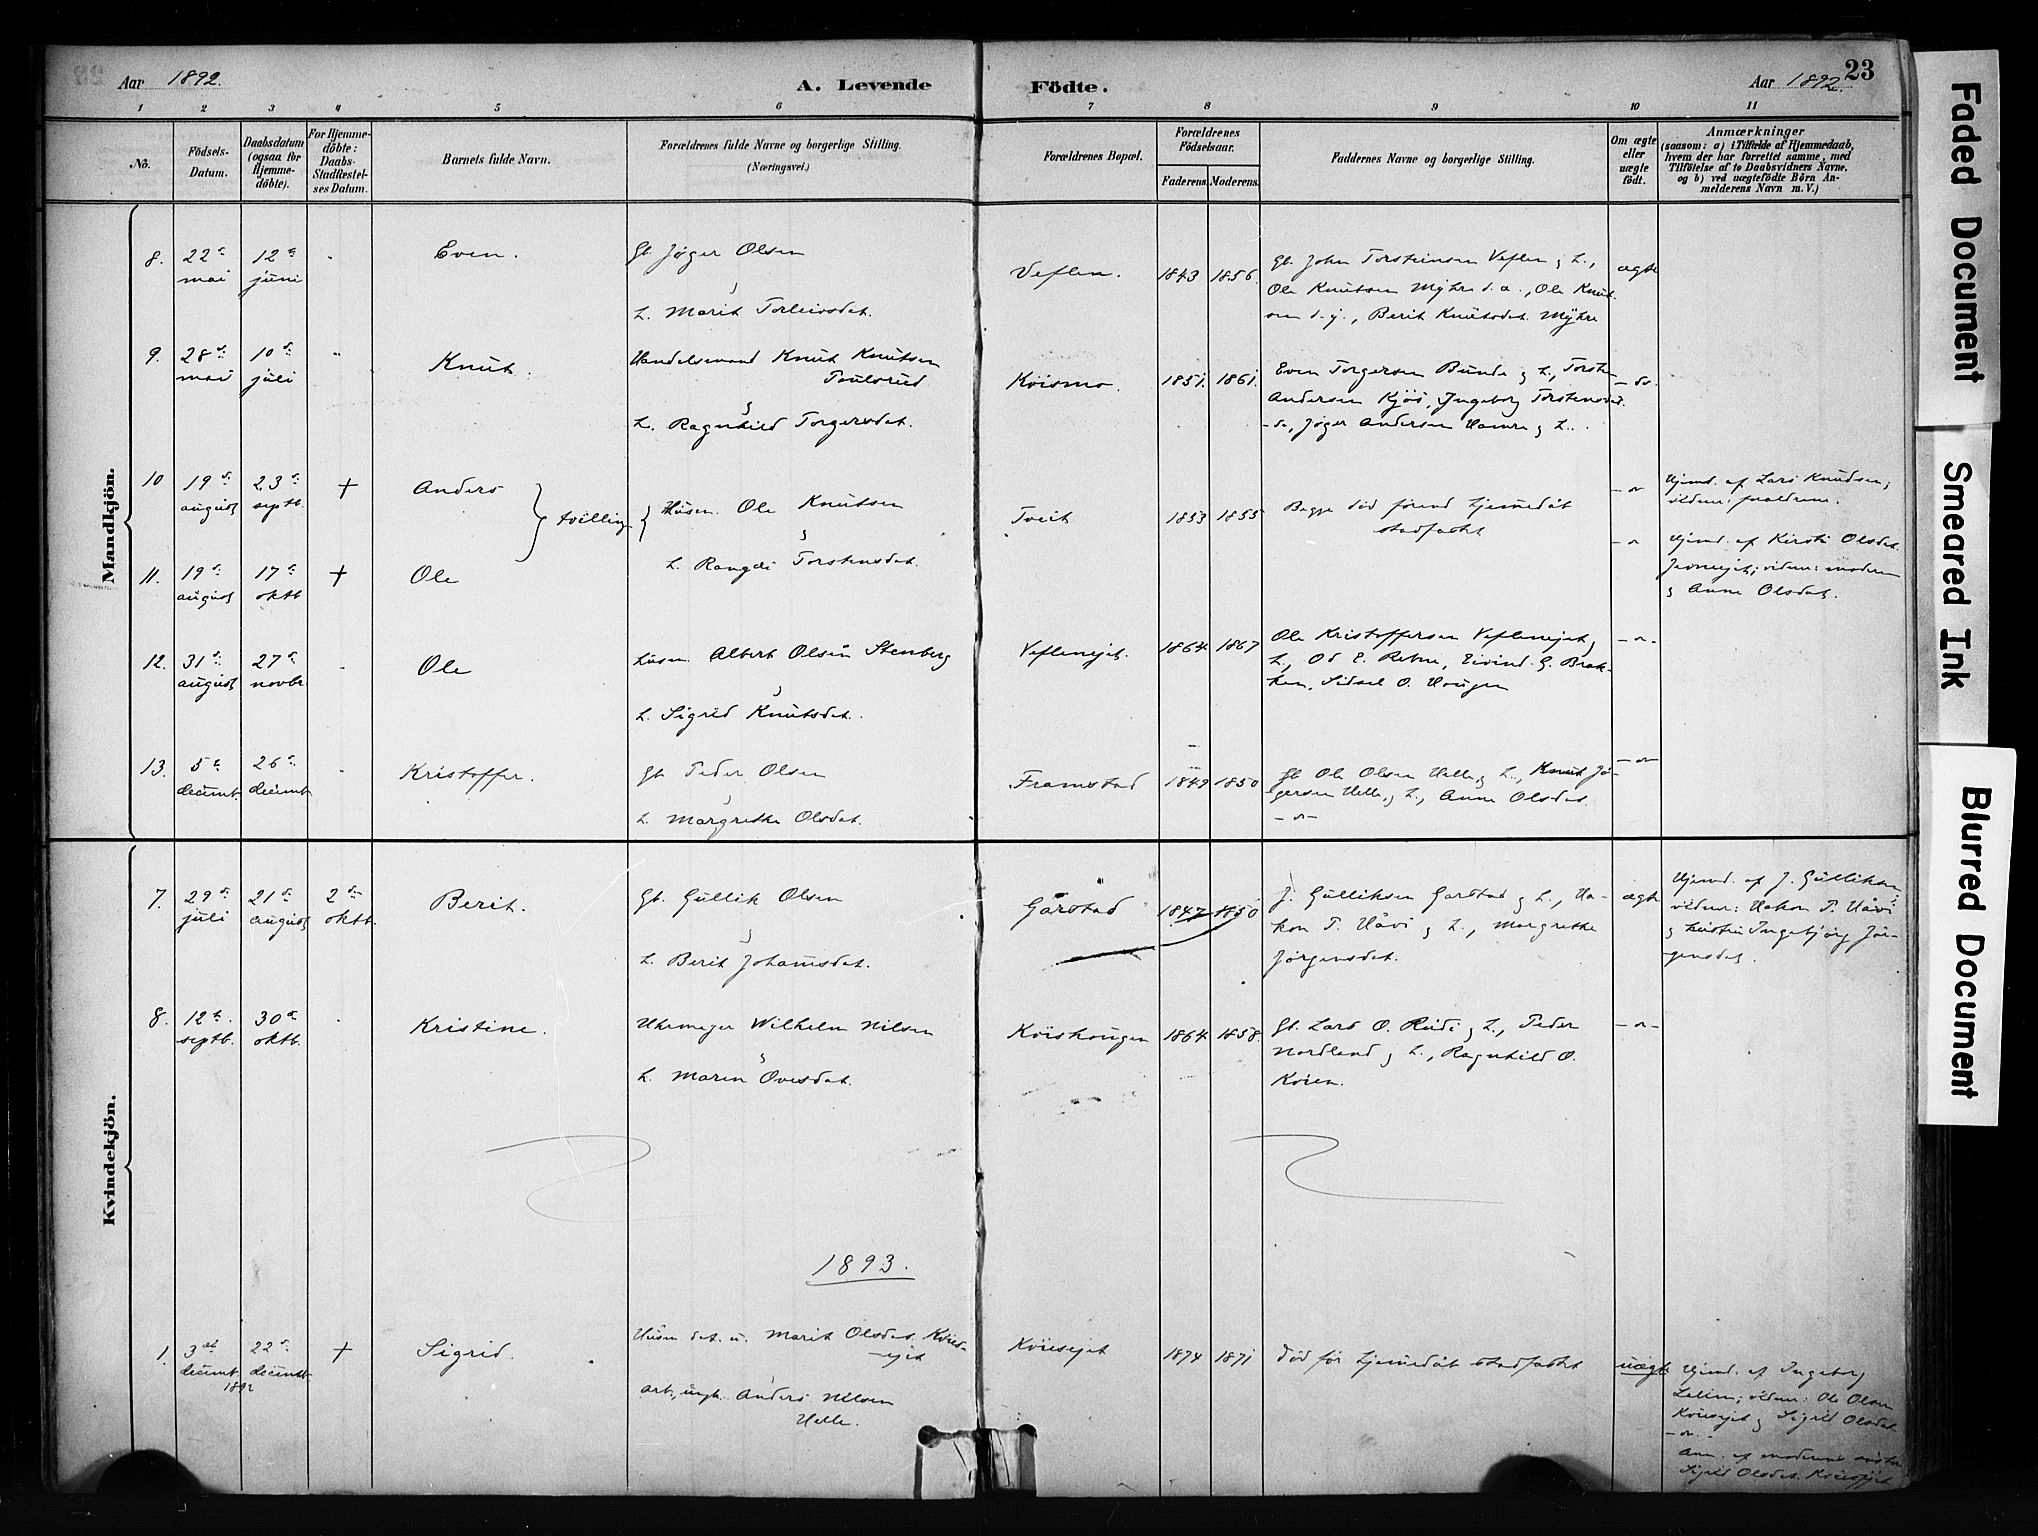 Aar 1892. A. Levende Födte. Aar 1892. 23
1 2 3 4 5 6 7 8 9 10 11
No. Födsels-Datum. Daabsdatum (ogsaa for Hjemme-döbte). For Hjemme-döbte: Daabs-Stadfestel-ses Datum. Barnets fulde Navn. Forældrenes fulde Navne og borgerlige Stilling. (Næringsvei.) Forældrenes Bopæl. Forældrenes Födselsaar. Faderens. Moderens. Faddernes Navne og borgerlige Stilling. Om ægte eller uægte födt. Anmærkninger (saasom: a) i Tilfælde af Hjemmedaab, hvem der har forrettet samme, med Tilföielse af to Daabsvidners Navne, og b) ved uægtefödte Börn An-melderens Navn m. V.)
Mandkjön.
8. 22d mai 12te juni Even. Gb. Jøger Olsen
& h. Marit Torleivsdat. Veflen. 1843 1856. Gb. John Torsteinsen Veflen & h., ægte
Ole Knutsen Myhre d. a., Ole Knut-
sen d. y., Berit Knutsdat. Myhre
9. 28de mai 10de juli Knut. Handelsmand Knut Knutsen
& h. Ragnhild Torgersdat. Kvismo. 1851. 1861. Even Torgersen Bunde & h., Torsten - do.
Andersen Kjös, Ingeborg Torstensdat.
-do, Jøger Andersen Hamre & h.
10 19de august 23de septb. † Anders } tvilling { Husm. Ole Knutsen Tveit 1853 1855 Begge død førend hjemmedåb - " Hjemd. af Lars Knudsen;
stadfæstet vidner: forældrene.
11. 19de august 17de oktb † Ole & h. Rangdi Torstensdat. - " Hjemd. af Kirsti Olsdat.
vidner: moderen
& Anne Olsdat.
12. 31te august 27de novbr Ole Husm. Albert Olsen Stenberg
& h. Sigrid Knutsdat. Veflenejet. 1864 1867 Ole Kristoffersen Veflenejet & - " -
h., Od E. Rebne, Eivind G. Brak-
ken, Sidsel O. Haugen
13. 5te decemb. 26de decemb. Kristoffer. Gb. Peder Olsen
& h. Margrethe Olsdat. Framstad 1849 1850 Gb Ole Olsen Helle & h., Knut Jø- - " -
gersen Helle & h., Anne Olsdat.
- " -
Kvindekjön.
7. 29de juli 21de august 2den oktb. Berit. Gb. Gullik Olsen
& h. Berit Johannsdat. Garstad 1847 1850 J. Gulliksen Garstad & h., Ha- ægte Hjemd. af J. Gulliksen,
kon T. Håvi & h., Margrethe vidner: Hakon T. Håvi
Jørgensdat. & Ingebjörg Jör-
gensdat.
8. 12te septb. 30te oktb. Kristine. Uhrmager Wilhelm Nilsen
& h. Maren Ovesdat. Kvishaugen 1864 1858. Gb. Lars O. Rudi & h., Peder - " -
Nordland & h., Ragnhild O.
Kvien.
1893.
1. 3die decemb. 1892 22de decemb. † Sigrid. Husm dat. u. Marit Olsdat. Kvies-
-ejet
arb., ungk. Anders Nilsen
Helle. Kviesejet 1874 1871 død før hjemmedåb stadfæstet uægte Hjemd. af Ingeborg
vidner: Ole Olsen
Kviesejet & Sigrid Olsdat.
- " -
Anm. af moderens søster
Sigrid Olsdat. Kviesejet
Faded Document
Smeared Ink
Blurred Document